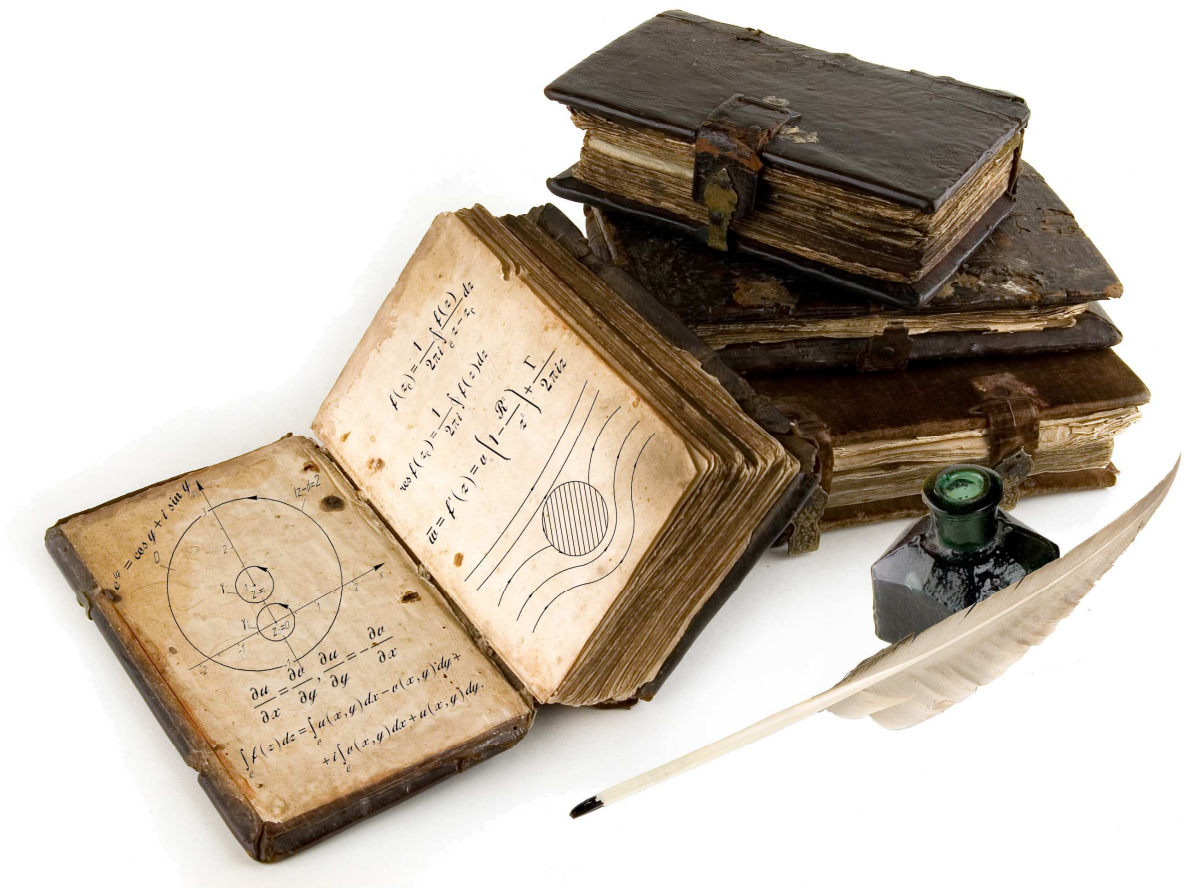 e^{iy} = cos y + i sin y
|z-i|=2
z=i
z=0
∂u/∂x = ∂v/∂y, ∂u/∂y = -∂v/∂x
∫_C f(z)dz = ∫_C u(x,y)dx - v(x,y)dy +
+ i∫_C v(x,y)dx + u(x,y)dy.
f(z₀) = 1/2πi ∫_C f(z)/z-z₀ dz
res f(z₀) = 1/2πi ∫ f(z)dz
w̅ = f'(z) = v(1 - R²/z²) + Γ/2πiz